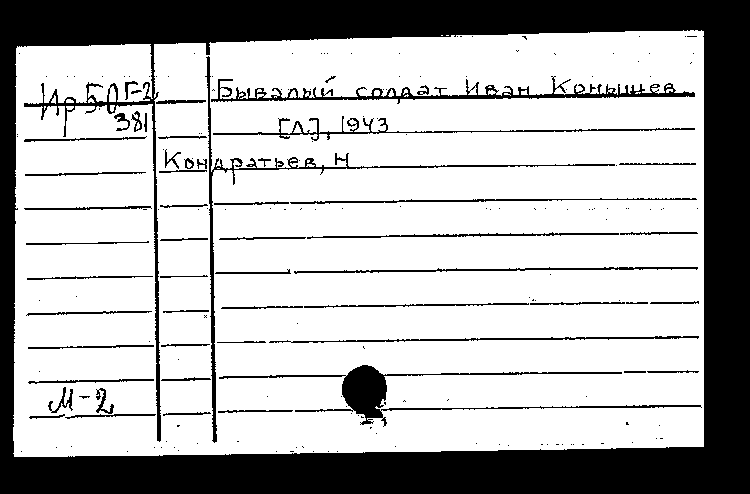 Ир50 Г-2 Бывалый солдат Иван Конышев
381 [Л.], 1943
Кондратьев, Н
М-2